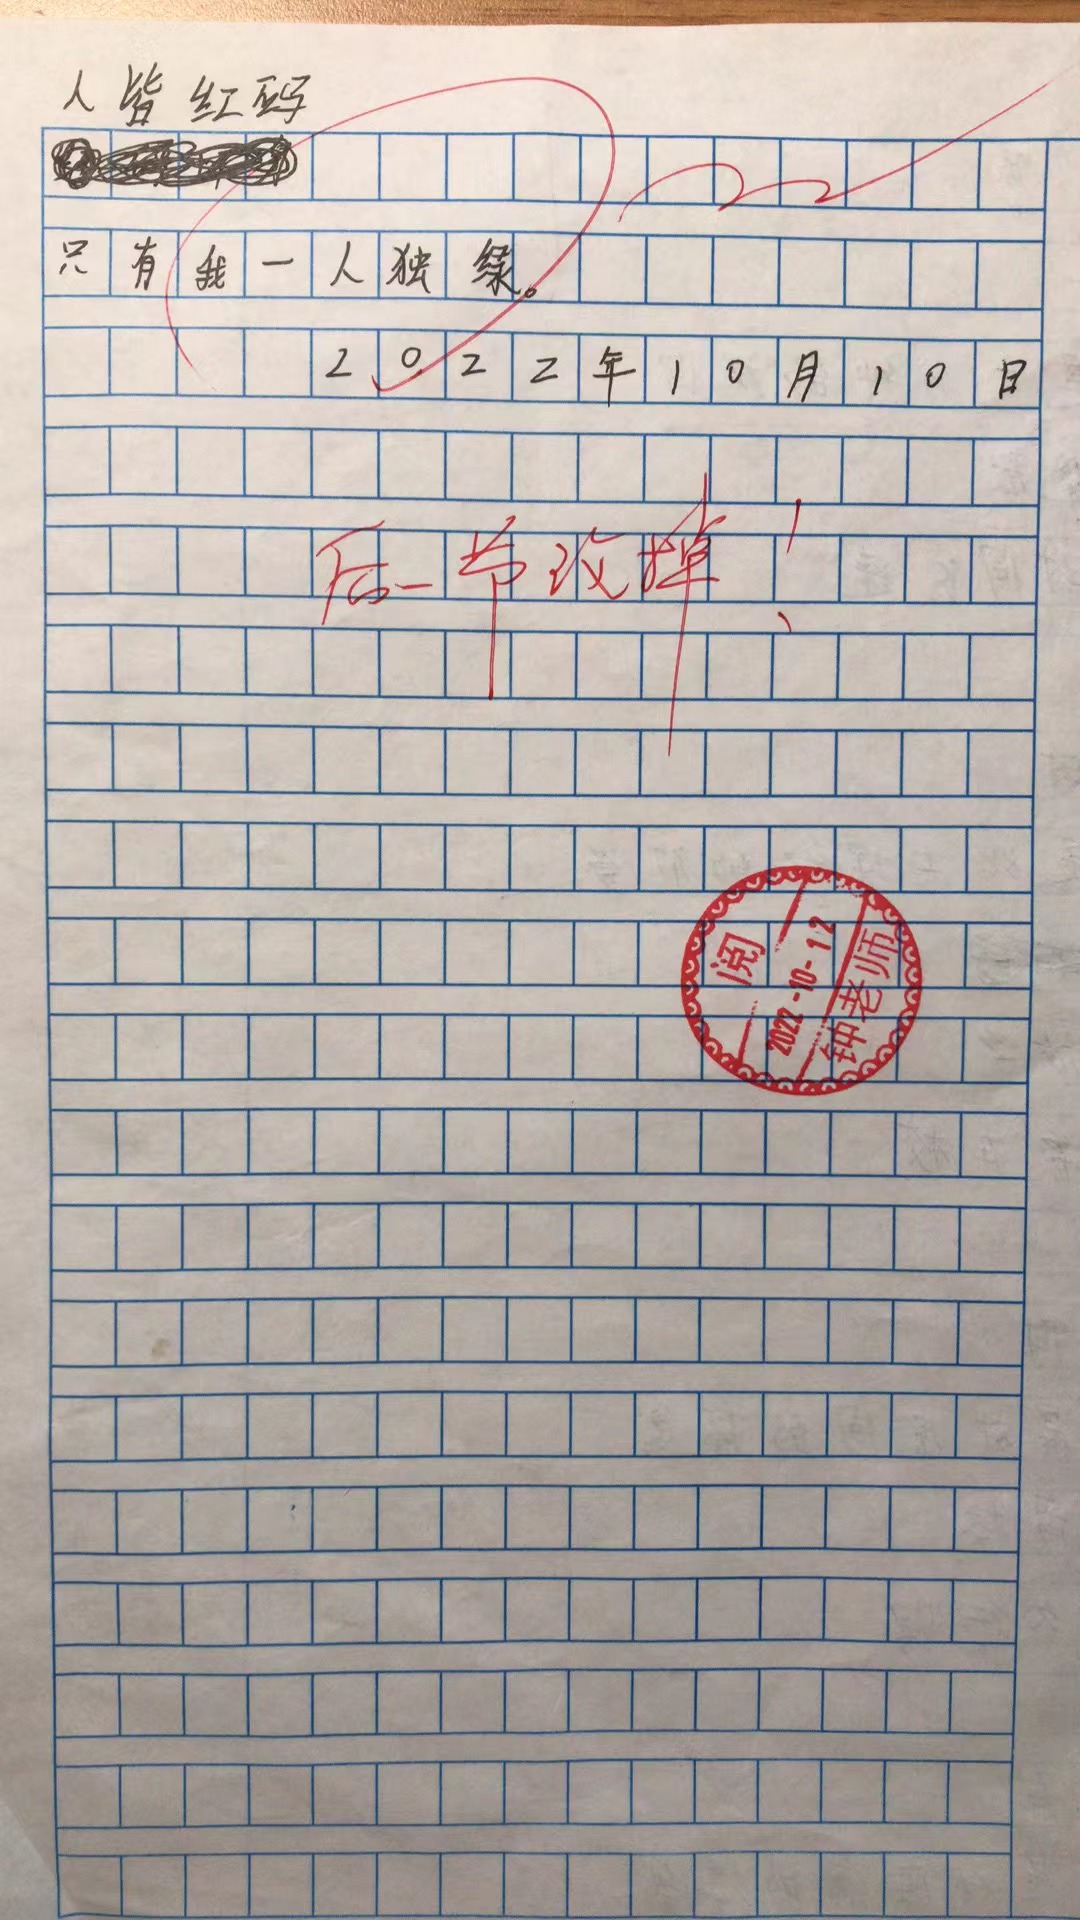 人皆红码
只有我一人独绿。
2022年10月10日
后一节改掉!
阅
2022-10-12
钟老师